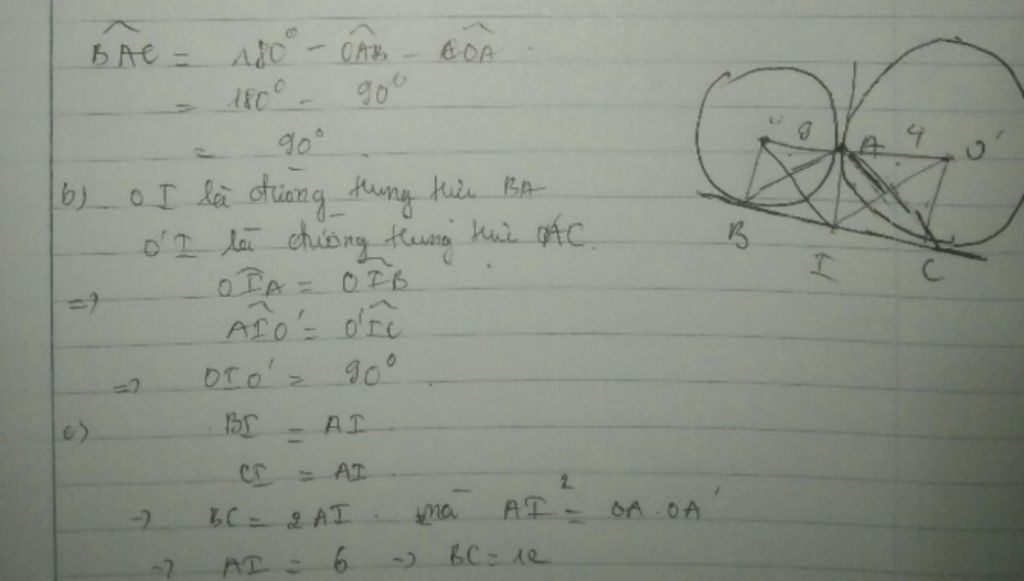 BAC = 180° - OAB - COA
= 180° - 90°
= 90°.
b) OI là đường trung trực BA
O'I là đường trung trực AC.
=> OIA = OIB
AIO' = O'IC
=> OIO' = 90°.
c) BI = AI
CI = AI.
-> BC = 2AI. mà AI² = OA.OA'
-> AI = 6 -> BC = 12
9 A 4 O'
B
I C